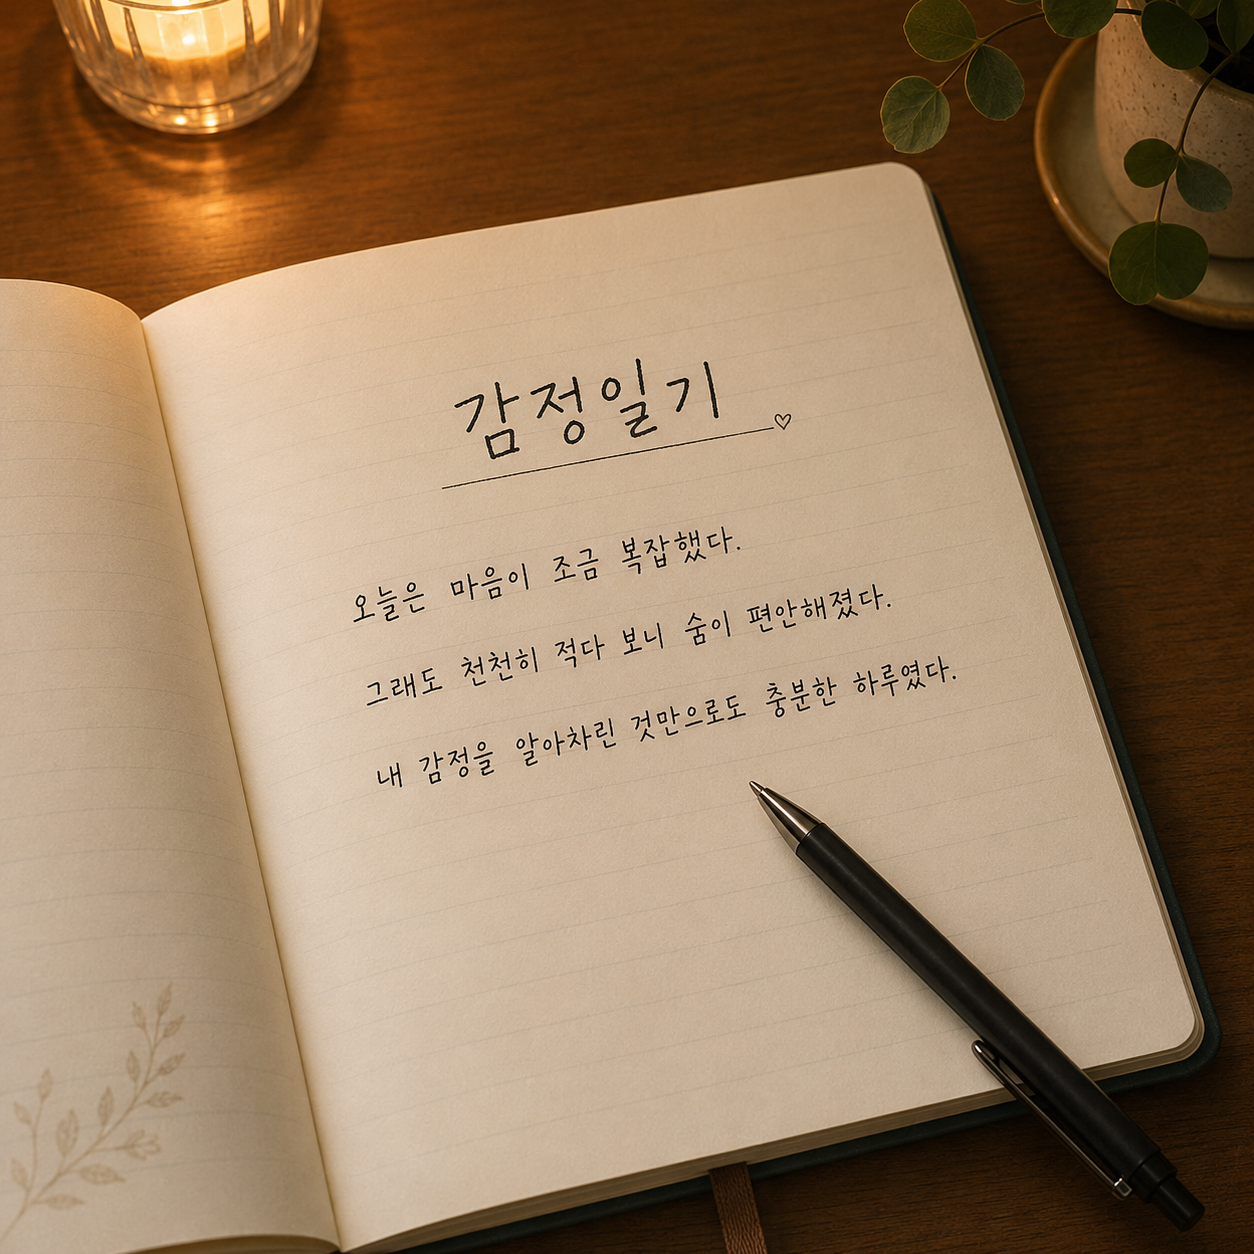 감정일기
오늘은 마음이 조금 복잡했다.
그래도 천천히 적다 보니 숨이 편안해졌다.
내 감정을 알아차린 것만으로도 충분한 하루였다.